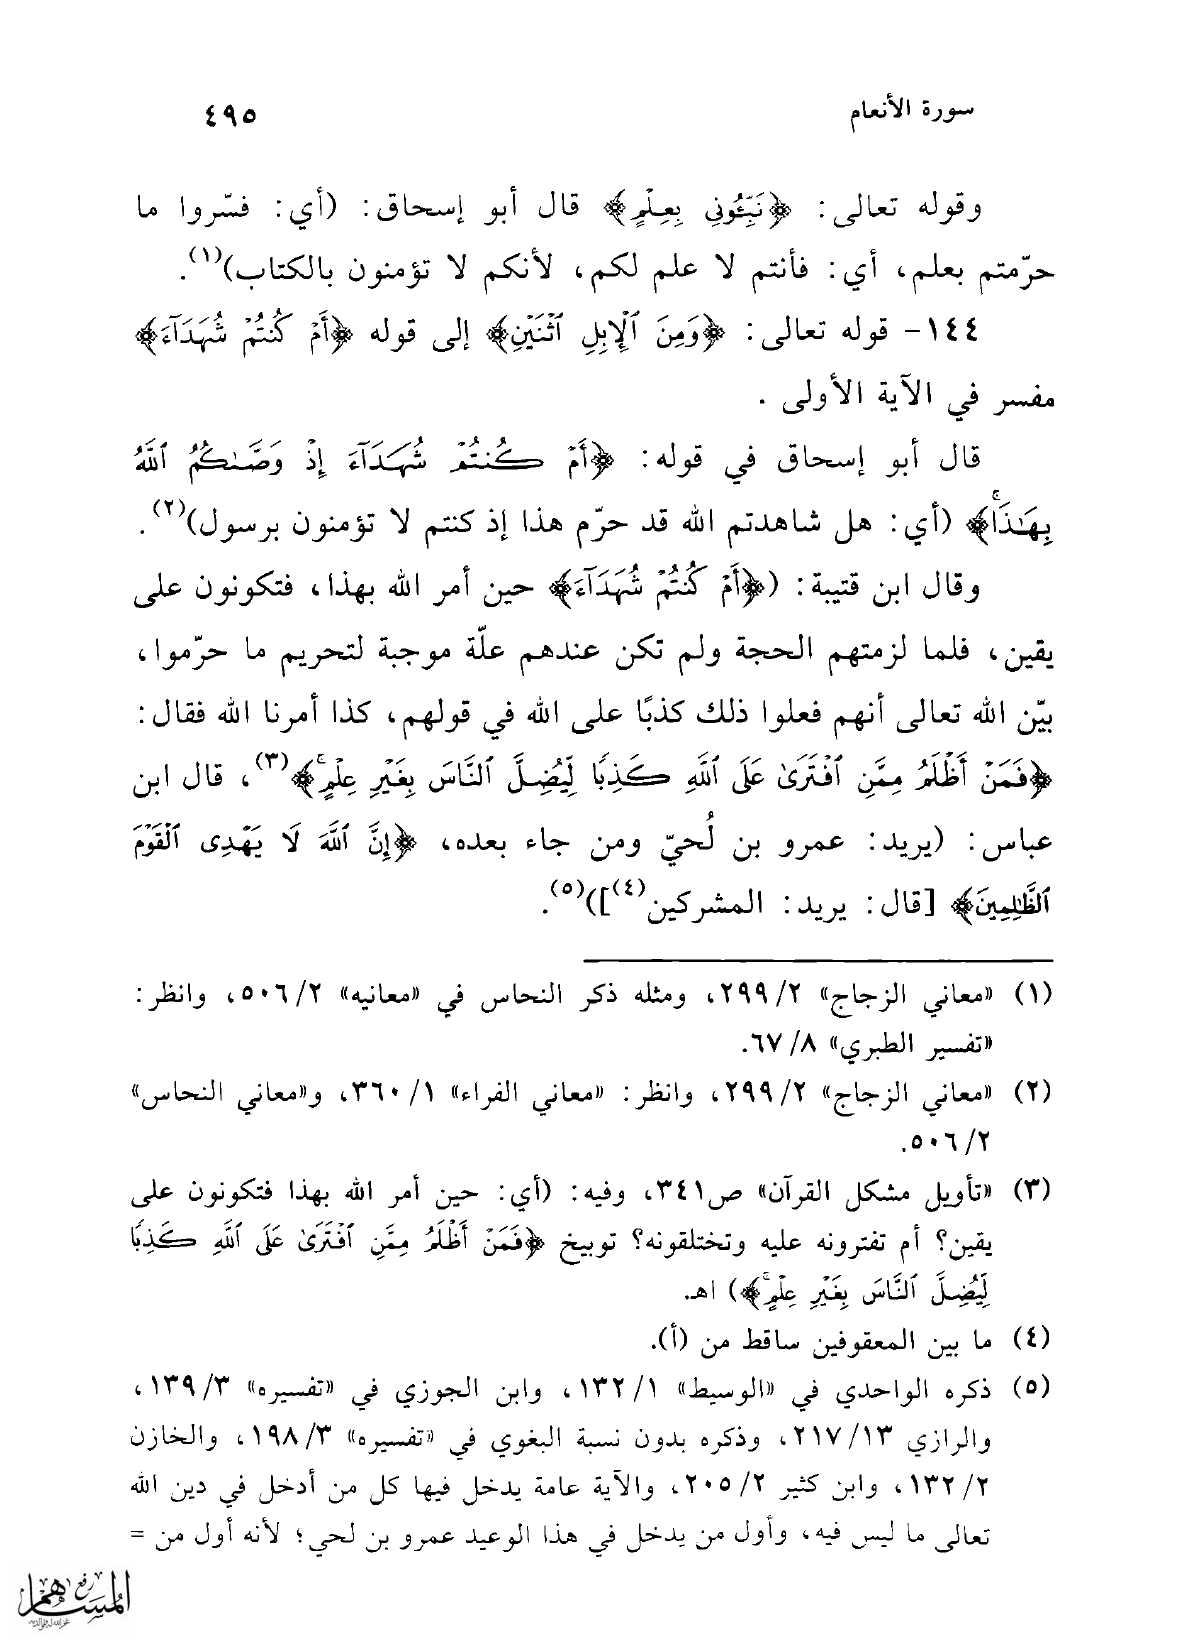 سورة الأنعام ٤٩٥
وقوله تعالى: ﴿نَبِّـُٔونِى بِعِلْمٍ﴾ قال أبو إسحاق: (أي: فسّروا ما
حرّمتم بعلم، أي: فأنتم لا علم لكم، لأنكم لا تؤمنون بالكتاب)(١).
١٤٤- قوله تعالى: ﴿وَمِنَ ٱلْإِبِلِ ٱثْنَيْنِ﴾ إلى قوله ﴿أَمْ كُنتُمْ شُهَدَآءَ﴾
مفسر في الآية الأولى .
قال أبو إسحاق في قوله: ﴿أَمْ كُنتُمْ شُهَدَآءَ إِذْ وَصَّىٰكُمُ ٱللَّهُ
بِهَـٰذَا ۚ﴾ (أي: هل شاهدتم الله قد حرّم هذا إذ كنتم لا تؤمنون برسول)(٢).
وقال ابن قتيبة: (﴿أَمْ كُنتُمْ شُهَدَآءَ﴾ حين أمر الله بهذا، فتكونون على
يقين، فلما لزمتهم الحجة ولم تكن عندهم علّة موجبة لتحريم ما حرّموا،
بيّن الله تعالى أنهم فعلوا ذلك كذبًا على الله في قولهم، كذا أمرنا الله فقال:
﴿فَمَنْ أَظْلَمُ مِمَّنِ ٱفْتَرَىٰ عَلَى ٱللَّهِ كَذِبًا لِّيُضِلَّ ٱلنَّاسَ بِغَيْرِ عِلْمٍ ۚ﴾(٣)، قال ابن
عباس: (يريد: عمرو بن لُحيّ ومن جاء بعده، ﴿إِنَّ ٱللَّهَ لَا يَهْدِى ٱلْقَوْمَ
ٱلظَّـٰلِمِينَ﴾ [قال: يريد: المشركين(٤)])(٥).
(١) «معاني الزجاج» ٢/ ٢٩٩، ومثله ذكر النحاس في «معانيه» ٢/ ٥٠٦، وانظر:
«تفسير الطبري» ٨/ ٦٧.
(٢) «معاني الزجاج» ٢/ ٢٩٩، وانظر: «معاني الفراء» ١/ ٣٦٠، و«معاني النحاس»
٢/ ٥٠٦.
(٣) «تأويل مشكل القرآن» ص٣٤١، وفيه: (أي: حين أمر الله بهذا فتكونون على
يقين؟ أم تفترونه عليه وتختلقونه؟ توبيخ ﴿فَمَنْ أَظْلَمُ مِمَّنِ ٱفْتَرَىٰ عَلَى ٱللَّهِ كَذِبًا
لِّيُضِلَّ ٱلنَّاسَ بِغَيْرِ عِلْمٍ ۚ﴾) اهـ.
(٤) ما بين المعقوفين ساقط من (أ).
(٥) ذكره الواحدي في «الوسيط» ١/ ١٣٢، وابن الجوزي في «تفسيره» ٣/ ١٣٩،
والرازي ١٣/ ٢١٧، وذكره بدون نسبة البغوي في «تفسيره» ٣/ ١٩٨، والخازن
٢/ ١٣٢، وابن كثير ٢/ ٢٠٥، والآية عامة يدخل فيها كل من أدخل في دين الله
تعالى ما ليس فيه، وأول من يدخل في هذا الوعيد عمرو بن لحي؛ لأنه أول من =
رفع
المساهم